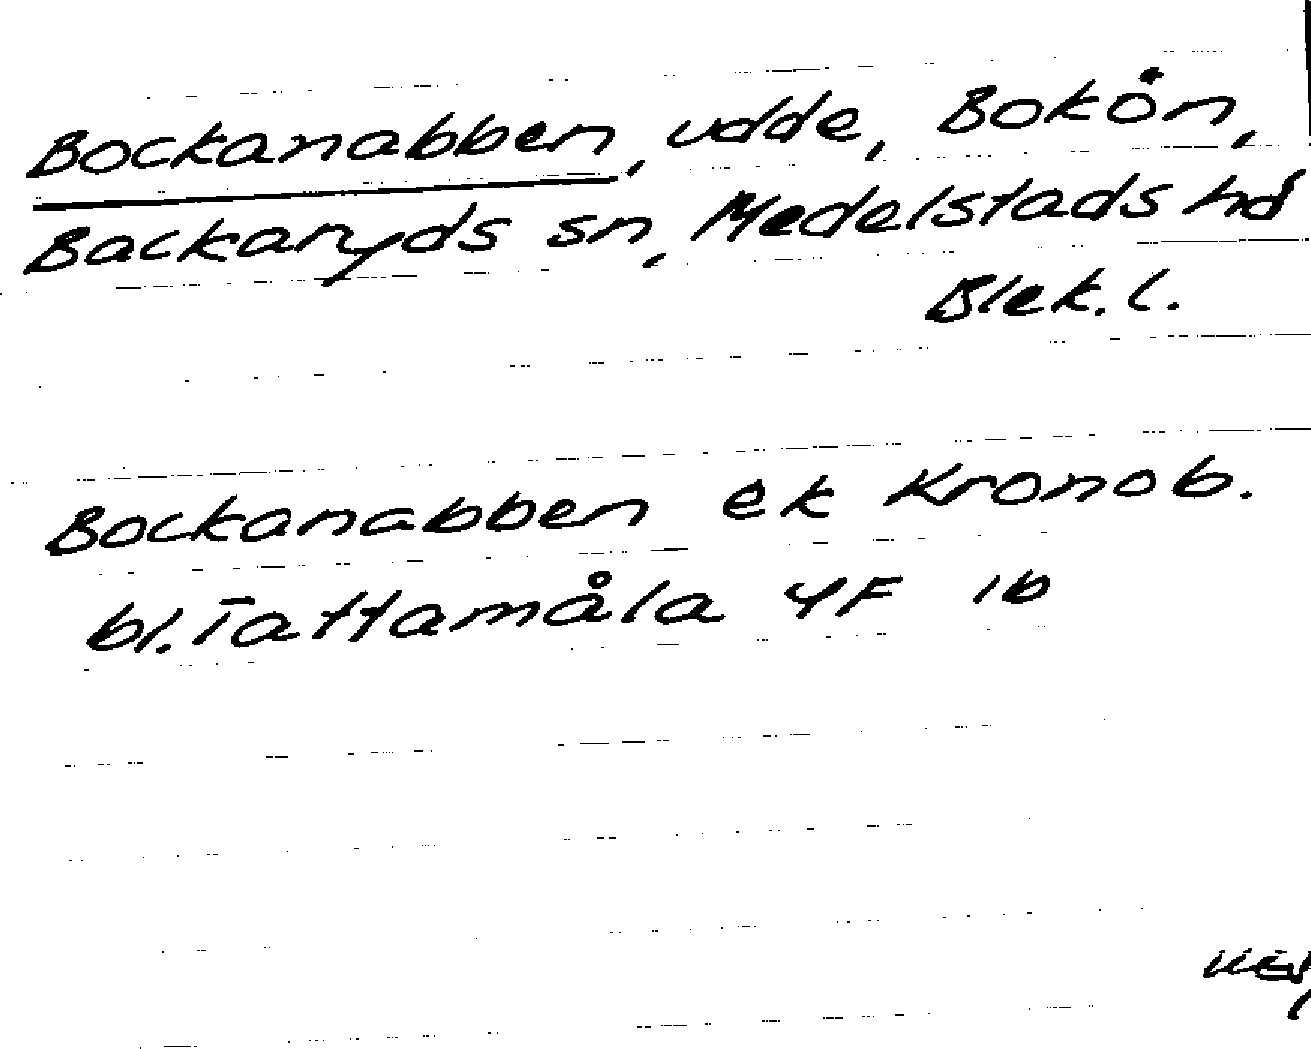 Bockanabben, udde, Bokön,
Backaryds sn, Medelstads hd
Blek. l.
Bockanabben ek Kronob.
bl. Tattamåla 4F 1b